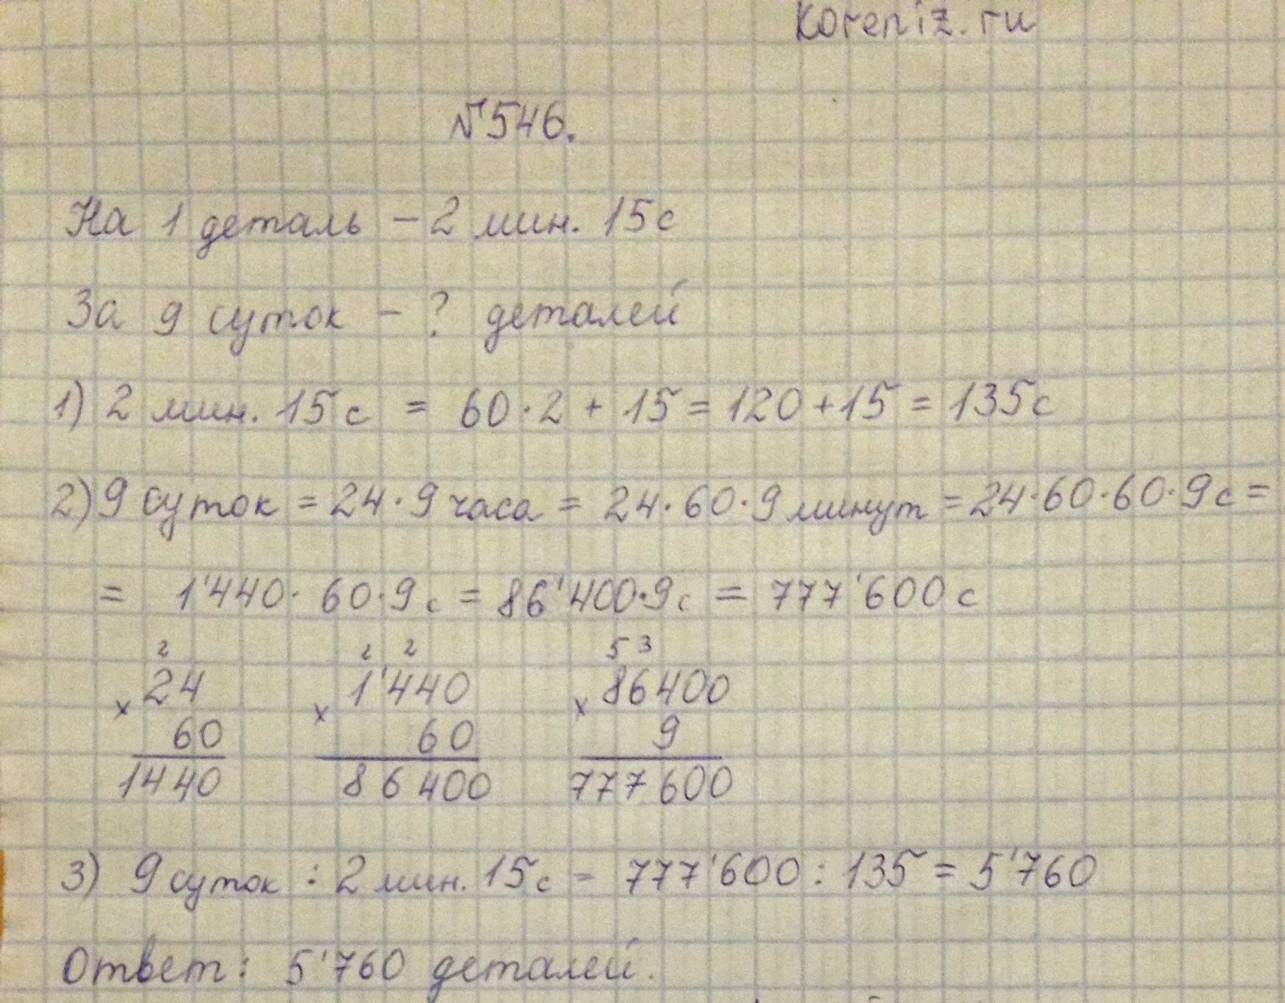 Koreniz.ru
№546.
На 1 деталь – 2 мин. 15 с
За 9 суток – ? деталей
1) 2 мин. 15 с = 60·2 + 15 = 120 + 15 = 135 с
2) 9 суток = 24·9 часа = 24·60·9 минут = 24·60·60·9 с =
= 1'440·60·9 с = 86'400·9 с = 777'600 с
2 2 2 5 3
× 24 × 1'440 × 86400
60 60 9
1440 86400 777600
3) 9 суток : 2 мин. 15 с = 777'600 : 135 = 5'760
Ответ: 5'760 деталей.